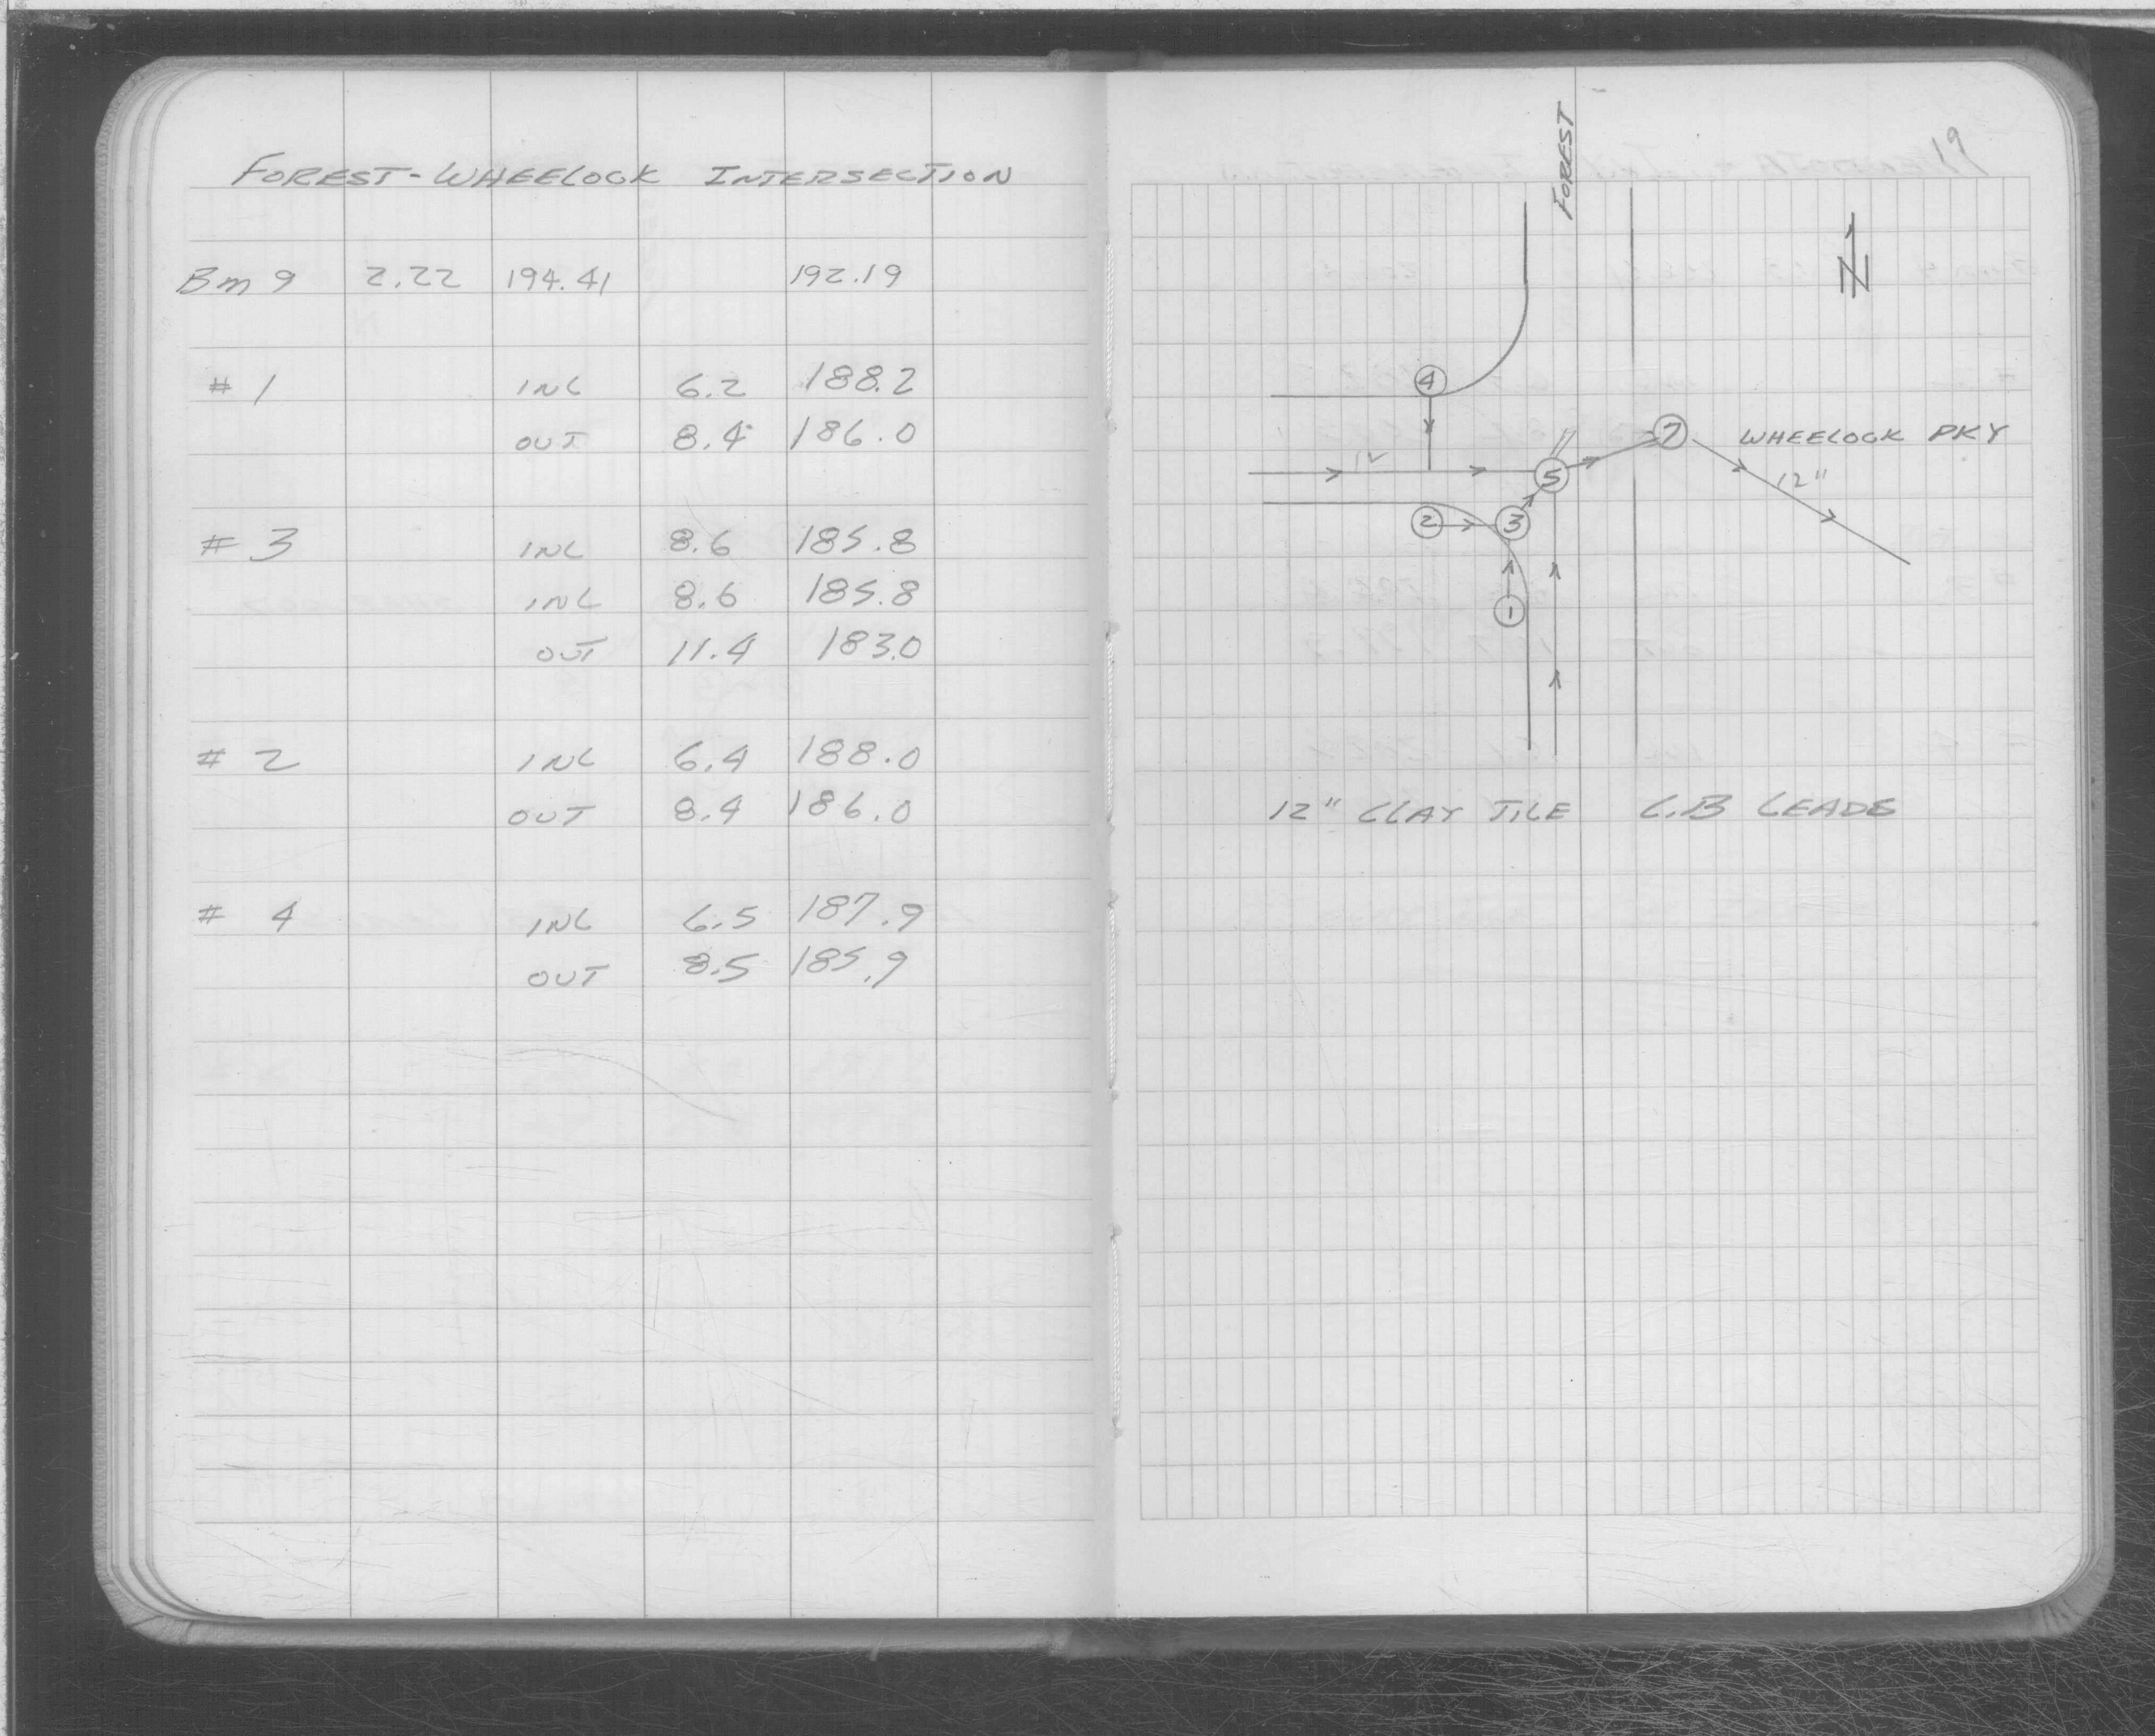 FOREST-WHEELOCK INTERSECTION
Bm 9 2.22 194.41 192.19
# 1 INL 6.2 188.2
OUT 8.4 186.0
# 3 INL 8.6 185.8
INL 8.6 185.8
OUT 11.4 183.0
# 2 INL 6.4 188.0
OUT 8.4 186.0
# 4 INL 6.5 187.9
OUT 8.5 185.9
19
FOREST
N
4
7 WHEELOCK PKY
12"
5
2 3
1
12" CLAY TILE C.B LEADS